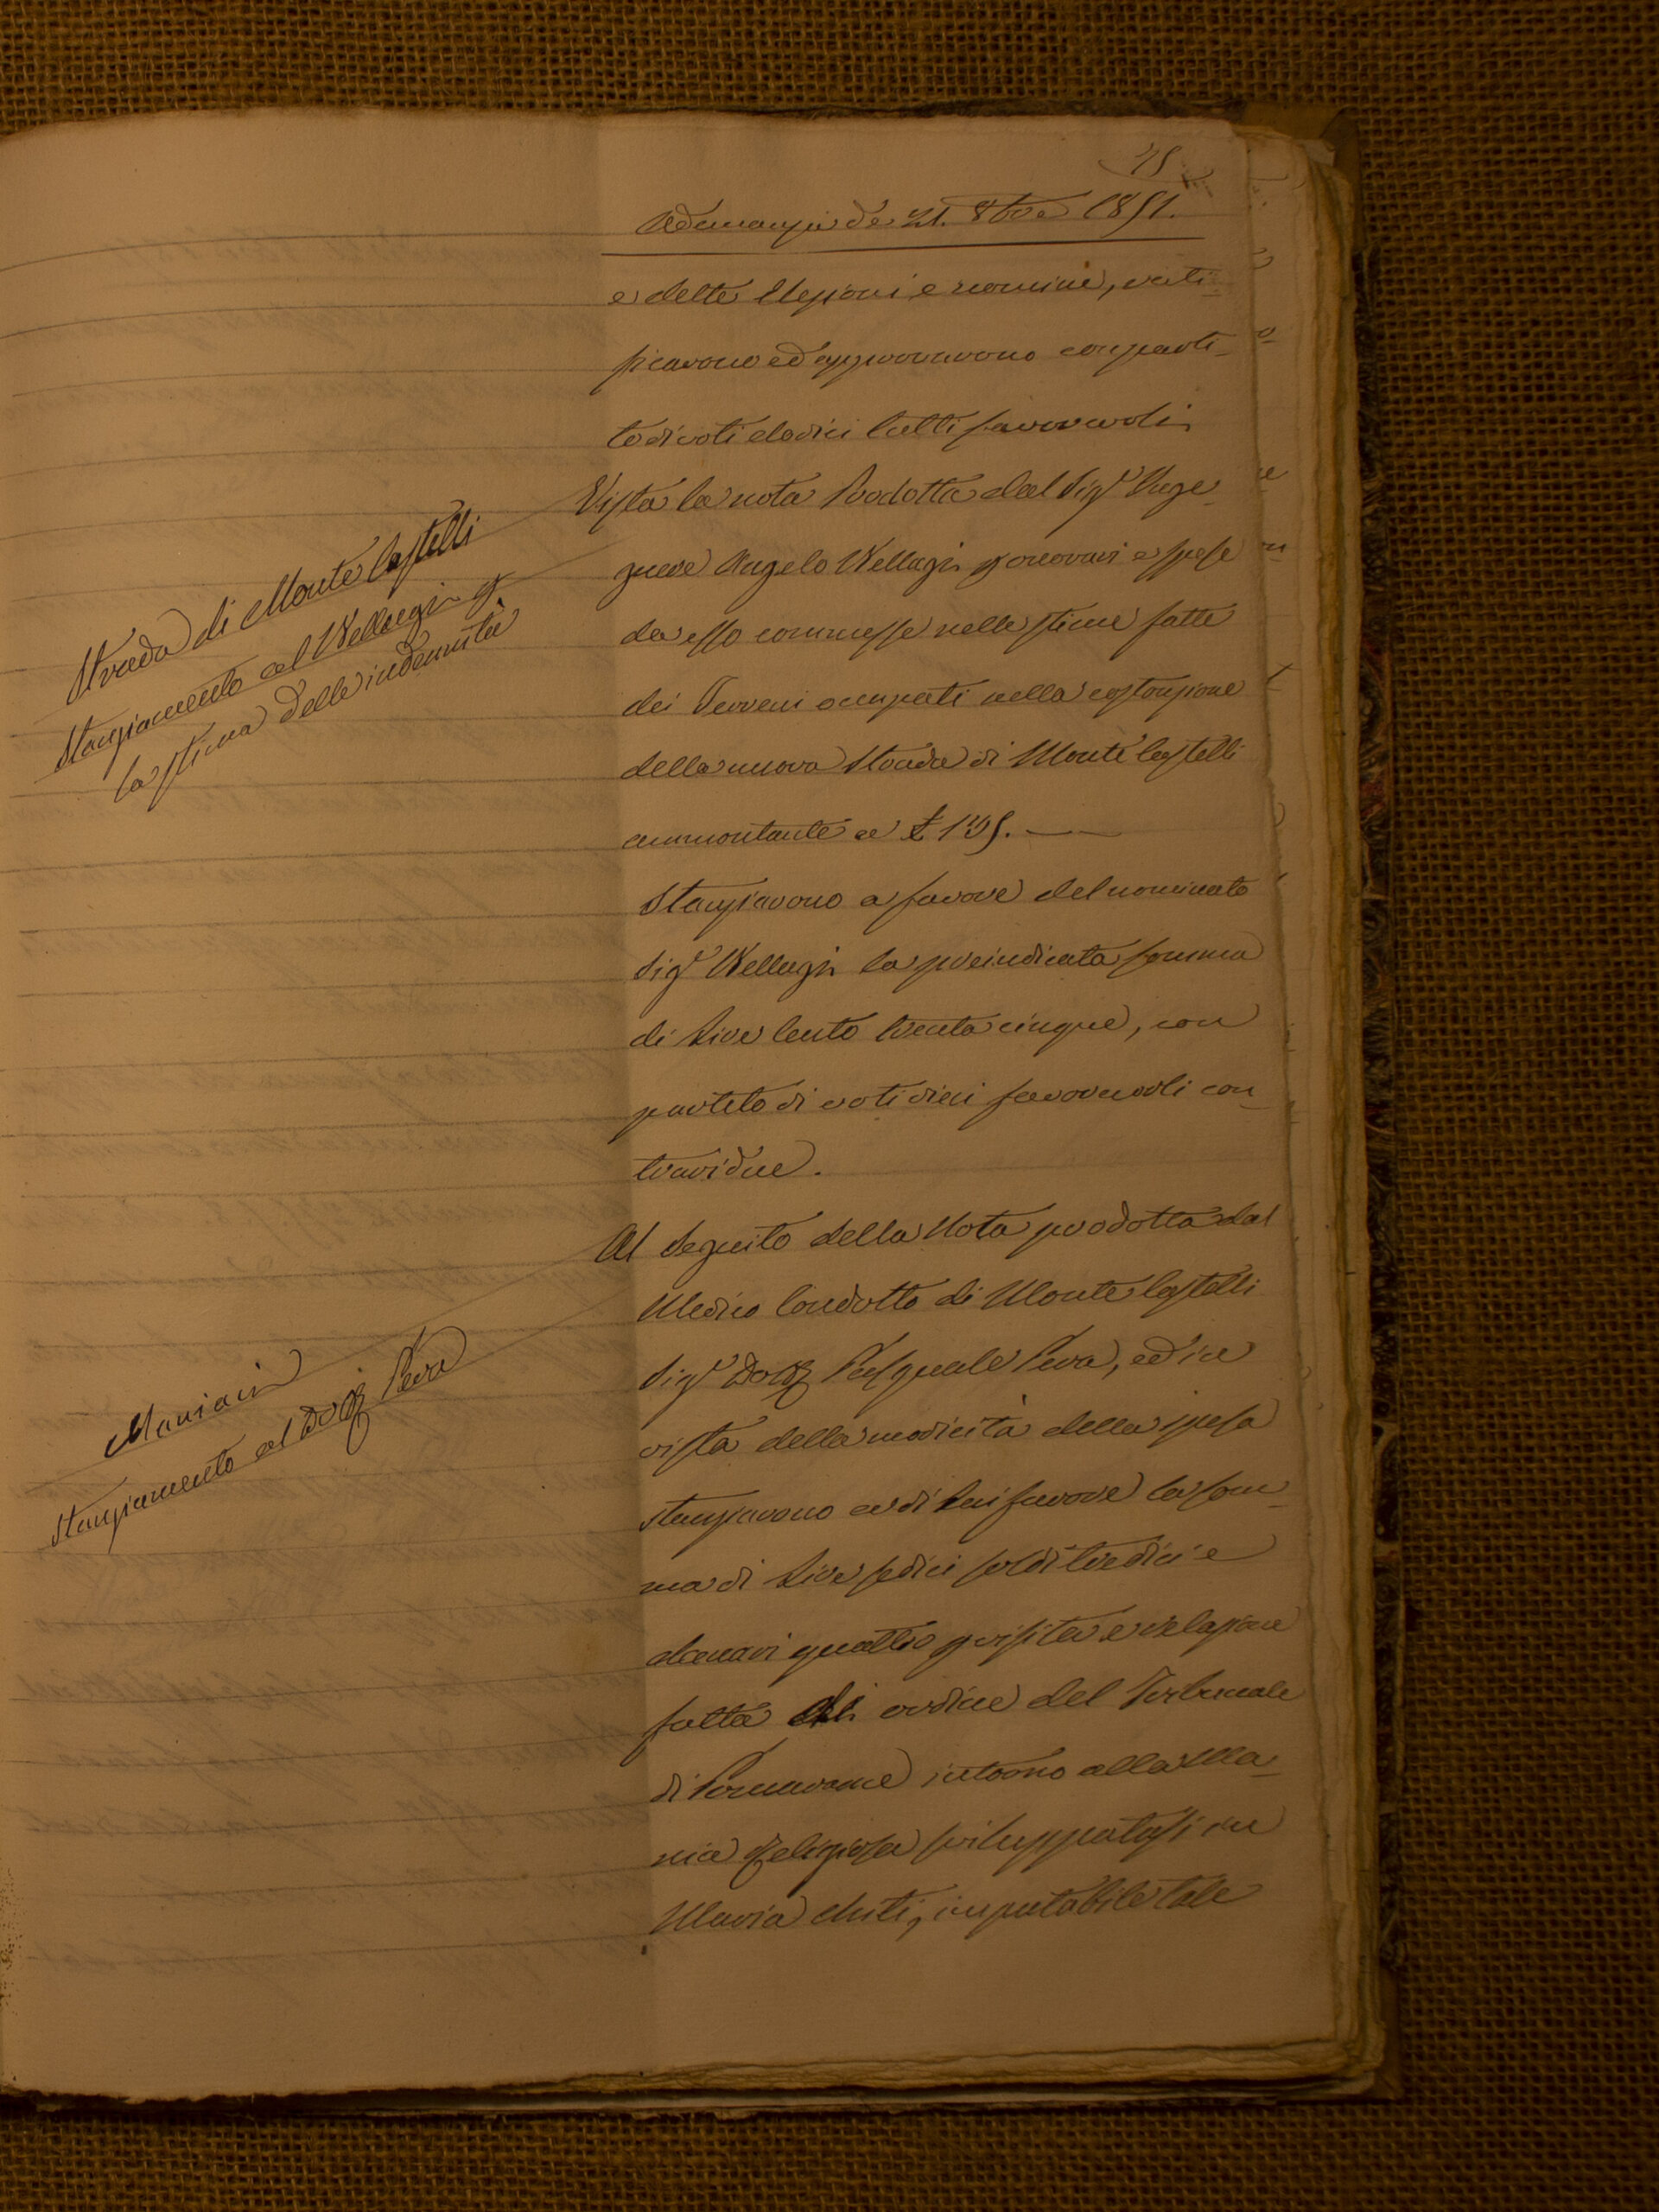 15
Adunanza de 21. 8bre 1851.
e dette Elezioni e nomine, rati-
ficarono ed approvarono con parti-
to di voti dodici tutti favorevoli.
Strada di Monte Castelli
Stanziamento al Vellagin p
la stima delle indennità
Vista la nota Prodotta dal Sigr Inge-
gnere Angelo Vellagin p onorari e spese
da esso commesse nelle stime fatte
dei Terreni occupati nella costruzione
della nuova Strada di Monte Castelli
ammontante a £ 135.
Stanziarono a favore del nominato
Sigr Vellagin la preindicata somma
di Lire Cento trenta cinque, con
partito di voti dieci favorevoli con-
trari due.
Maniaci
Stanziamento al Dott Pera
Al Seguito della Nota prodotta dal
Medico Condotto di Monte Castelli
Sigr Dott Pasquale Pera, ed in
vista della modicità della spesa
stanziarono a di lui favore la som-
ma di Lire sedici soldi tredici e
denari quattro p visita e relazione
fatta di ordine del Tribunale
di Pomarance intorno alla Ma-
nia Religiosa sviluppatasi in
Maria Chiti, imputabile tale